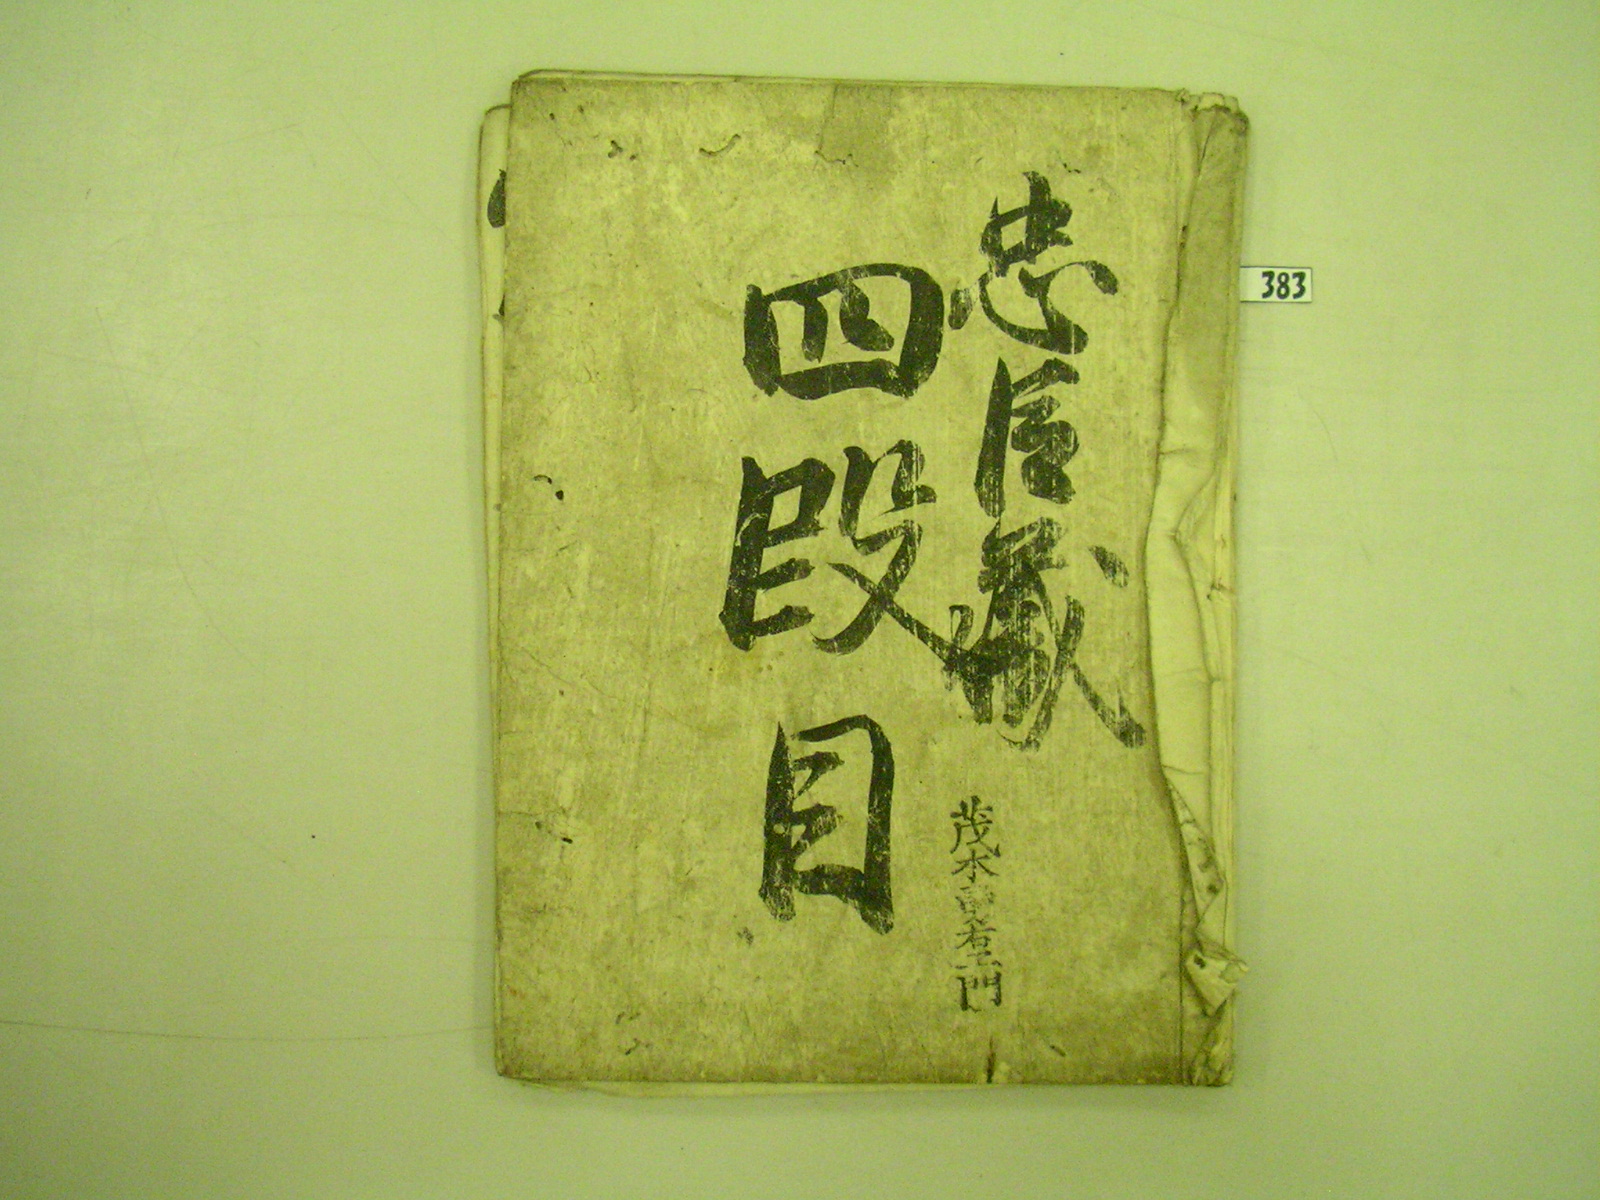 忠臣蔵
四段目
茂木右エ門
383